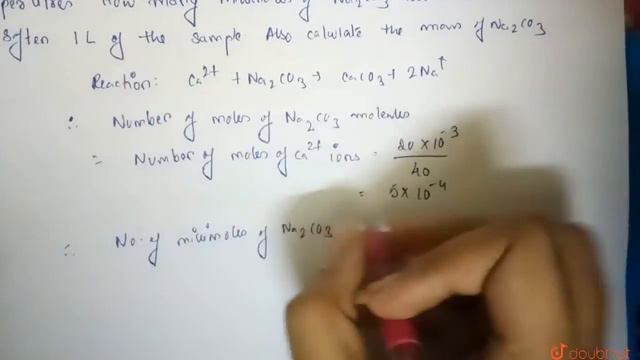 How many millimoles of Na2CO3
soften 1L of the sample Also calculate the mass of Na2CO3
Reaction: Ca2+ + Na2CO3 → CaCO3 + 2Na+
∴ Number of moles of Na2CO3 molecules
= Number of moles of Ca2+ ions = 20 × 10-3
40
= 5 × 10-4
∴ No. of millimoles of Na2CO3
doubtnut